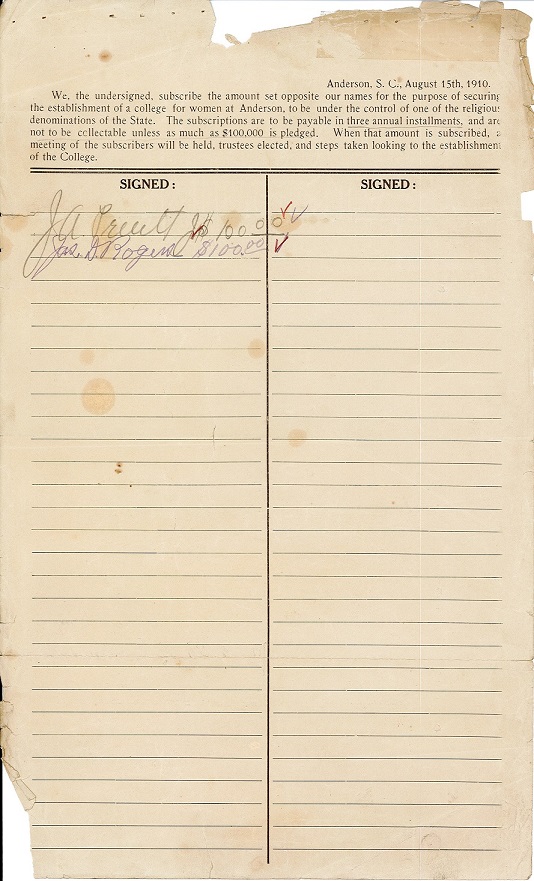 Anderson, S. C., August 15th, 1910.
We, the undersigned, subscribe the amount set opposite our names for the purpose of securing
the establishment of a college for women at Anderson, to be under the control of one of the religious
denominations of the State. The subscriptions are to be payable in three annual installments, and are
not to be collectable unless as much as $100,000 is pledged. When that amount is subscribed, a
meeting of the subscribers will be held, trustees elected, and steps taken looking to the establishment
of the College.
SIGNED: SIGNED:
J A Pruitt $100.00
Jas. D. Rogers $100.00